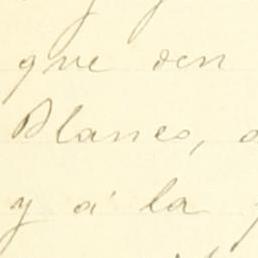 que den
Blanco,
y á la